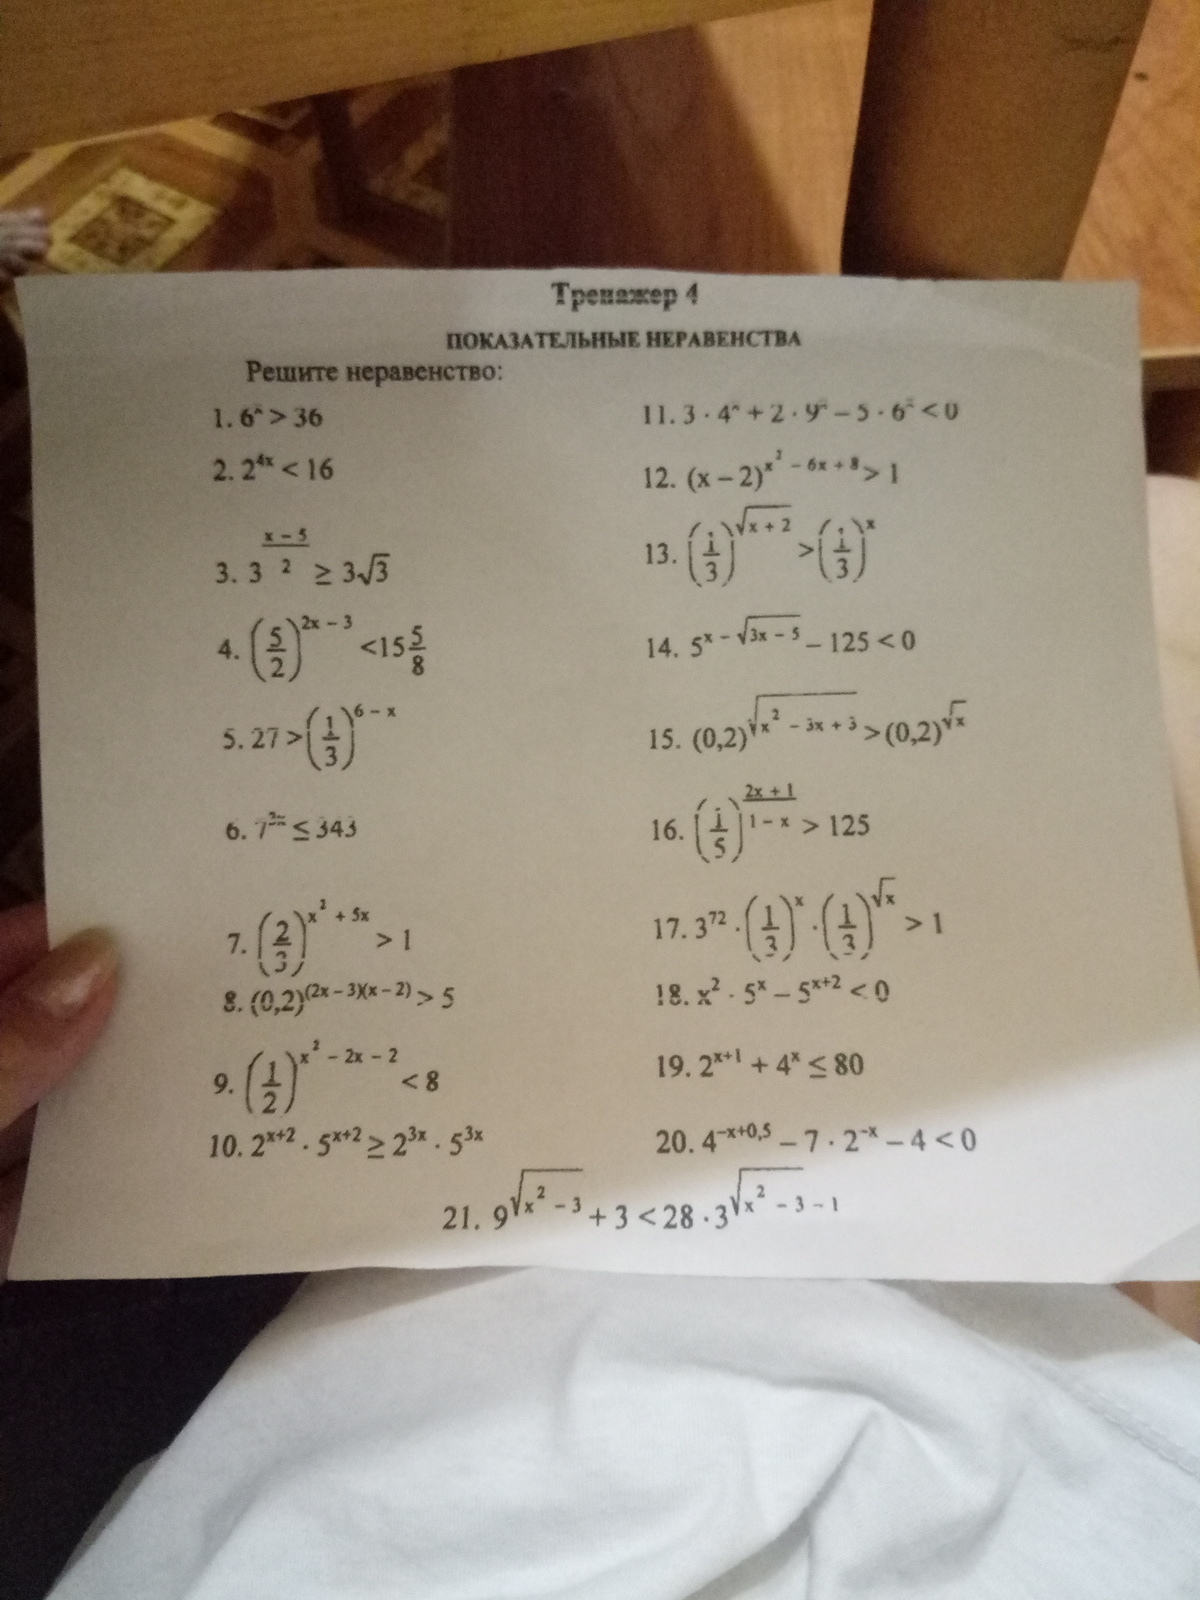 Тренажер 4
ПОКАЗАТЕЛЬНЫЕ НЕРАВЕНСТВА
Решите неравенство:
1. 6^x > 36
2. 2^{4x} < 16
3. 3^{\frac{x-5}{2}} ≥ 3√3
4. (5/2)^{2x-3} < 15 5/8
5. 27 > (1/3)^{6-x}
6. 7^{2x} ≤ 343
7. (2/3)^{x^2+5x} > 1
8. (0,2)^{(2x-3)(x-2)} > 5
9. (1/2)^{x^2-2x-2} < 8
10. 2^{x+2} · 5^{x+2} ≥ 2^{3x} · 5^{3x}
11. 3 · 4^x + 2 · 9^x – 5 · 6^x < 0
12. (x – 2)^{x^2-6x+8} > 1
13. (1/3)^{√(x+2)} > (1/3)^x
14. 5^{x-√(3x-5)} – 125 < 0
15. (0,2)^{√(x^2-3x+3)} > (0,2)^{√x}
16. (1/5)^{\frac{2x+1}{1-x}} > 125
17. 3^{72} · (1/3)^x · (1/3)^{√x} > 1
18. x^2 · 5^x – 5^{x+2} < 0
19. 2^{x+1} + 4^x ≤ 80
20. 4^{-x+0,5} – 7 · 2^{-x} – 4 < 0
21. 9^{√(x^2-3)} + 3 < 28 · 3^{√(x^2-3)-1}